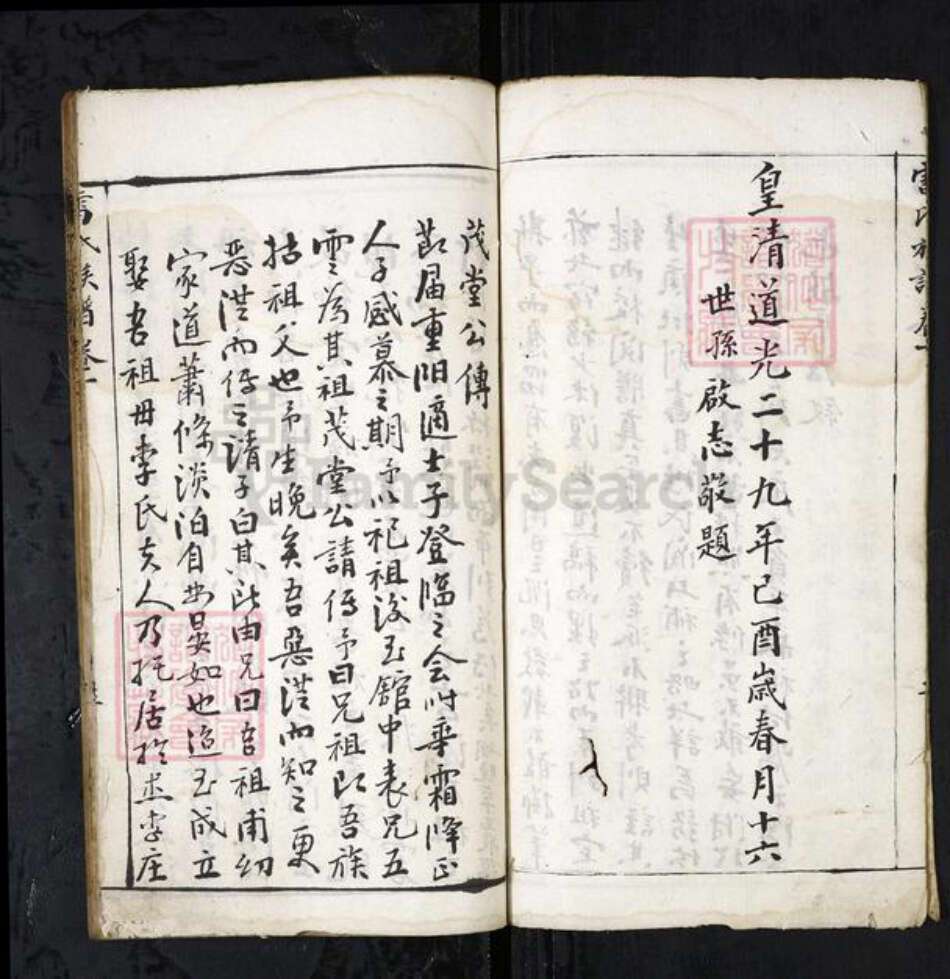 皇清道光二十九年己酉歲春月十六
世孫啟志敬題
茂堂公傳
節届重阳適士子登臨之会时華霜降正
人子感慕之期予以祀祖後至舘中表兄五
雲为其祖茂堂公請傳予曰兄祖即吾族
姑祖父也予生晚矣吾惡洪而知之更
惡洪而传之請子白其所由兄曰吾祖甫幼
家道蕭條淡泊自安晏如也迨至成立
娶吾祖母李氏夫人乃托居於李庄
氏族譜卷一
FamilySearch